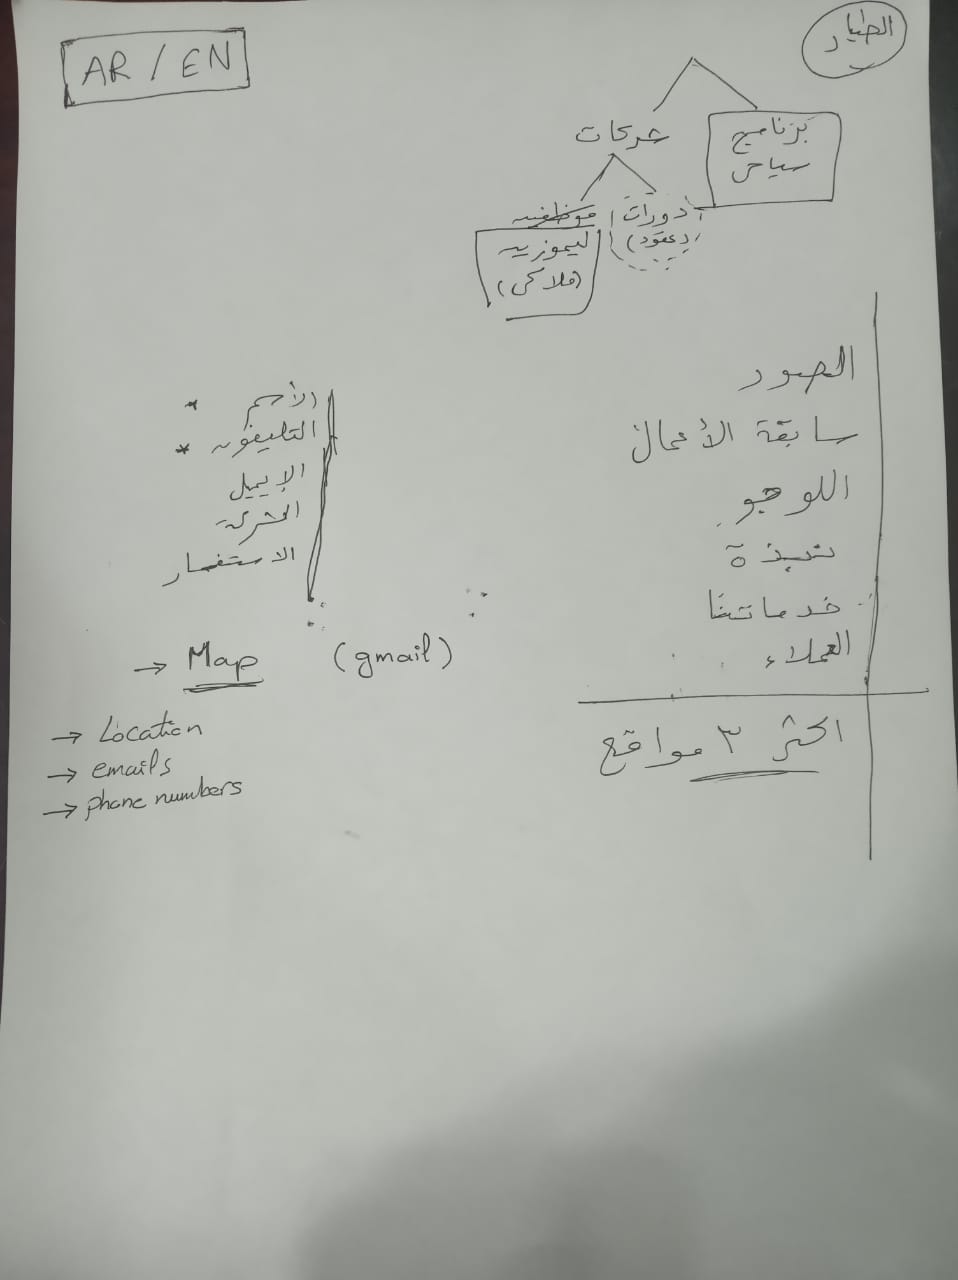 الطيار
AR / EN
برنامج
سياحى
شركات
دورات
(عقود)
موظفين
ليموزين
(ملاكى)
الصور
سابقة الأعمال
اللوجو
نبذة
خدماتنا
العملاء
اكثر ٣ مواقع
الأسم *
التليفون *
الإيميل
الشركة
الاستفسار
→ Map (gmail)
→ Location
→ emails
→ phone numbers